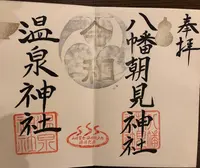 奉拝
八幡朝見神社
令和
温泉神社